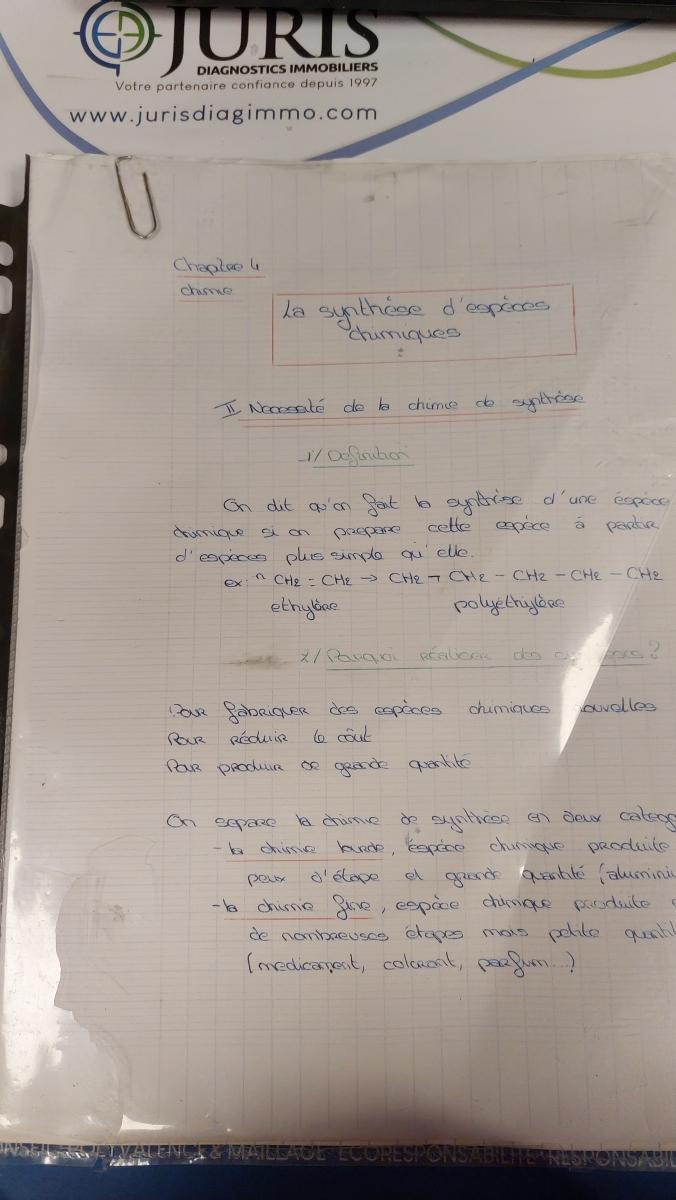 JURIS
DIAGNOSTICS IMMOBILIERS
Votre partenaire confiance depuis 1997
www.jurisdiagimmo.com
Chapitre 4
chimie
La synthèse d'espèces
chimiques
:
II Necessité de la chimie de synthèse
1/ Definition
On dit qu'on fait la synthèse d'une éspèce
chimique si on prepare cette espèce à partir
d'espèces plus simple qu'elle.
ex: n CH2 = CH2 → CH2 - CH2 - CH2 - CH2 - CH2
ethylène polyéthylène
2/ Pourquoi réaliser des ?
Pour fabriquer des espèces chimiques ouvelles
Pour réduire le coût
Pour produire de grande quantité
On separe la chimie de synthèse en deux categ
- la chimie lourde, éspèce chimique produite
peux d'étape et grande quantité (alumini
- la chimie fine, espèce chimique produite
de nombreuses étapes mais petite quantit
(medicament, colorant, parfum...)
NSEIL POLYVALENCE & MAILLAGE ÉCORESPONSABILITÉ RESPONSABILI